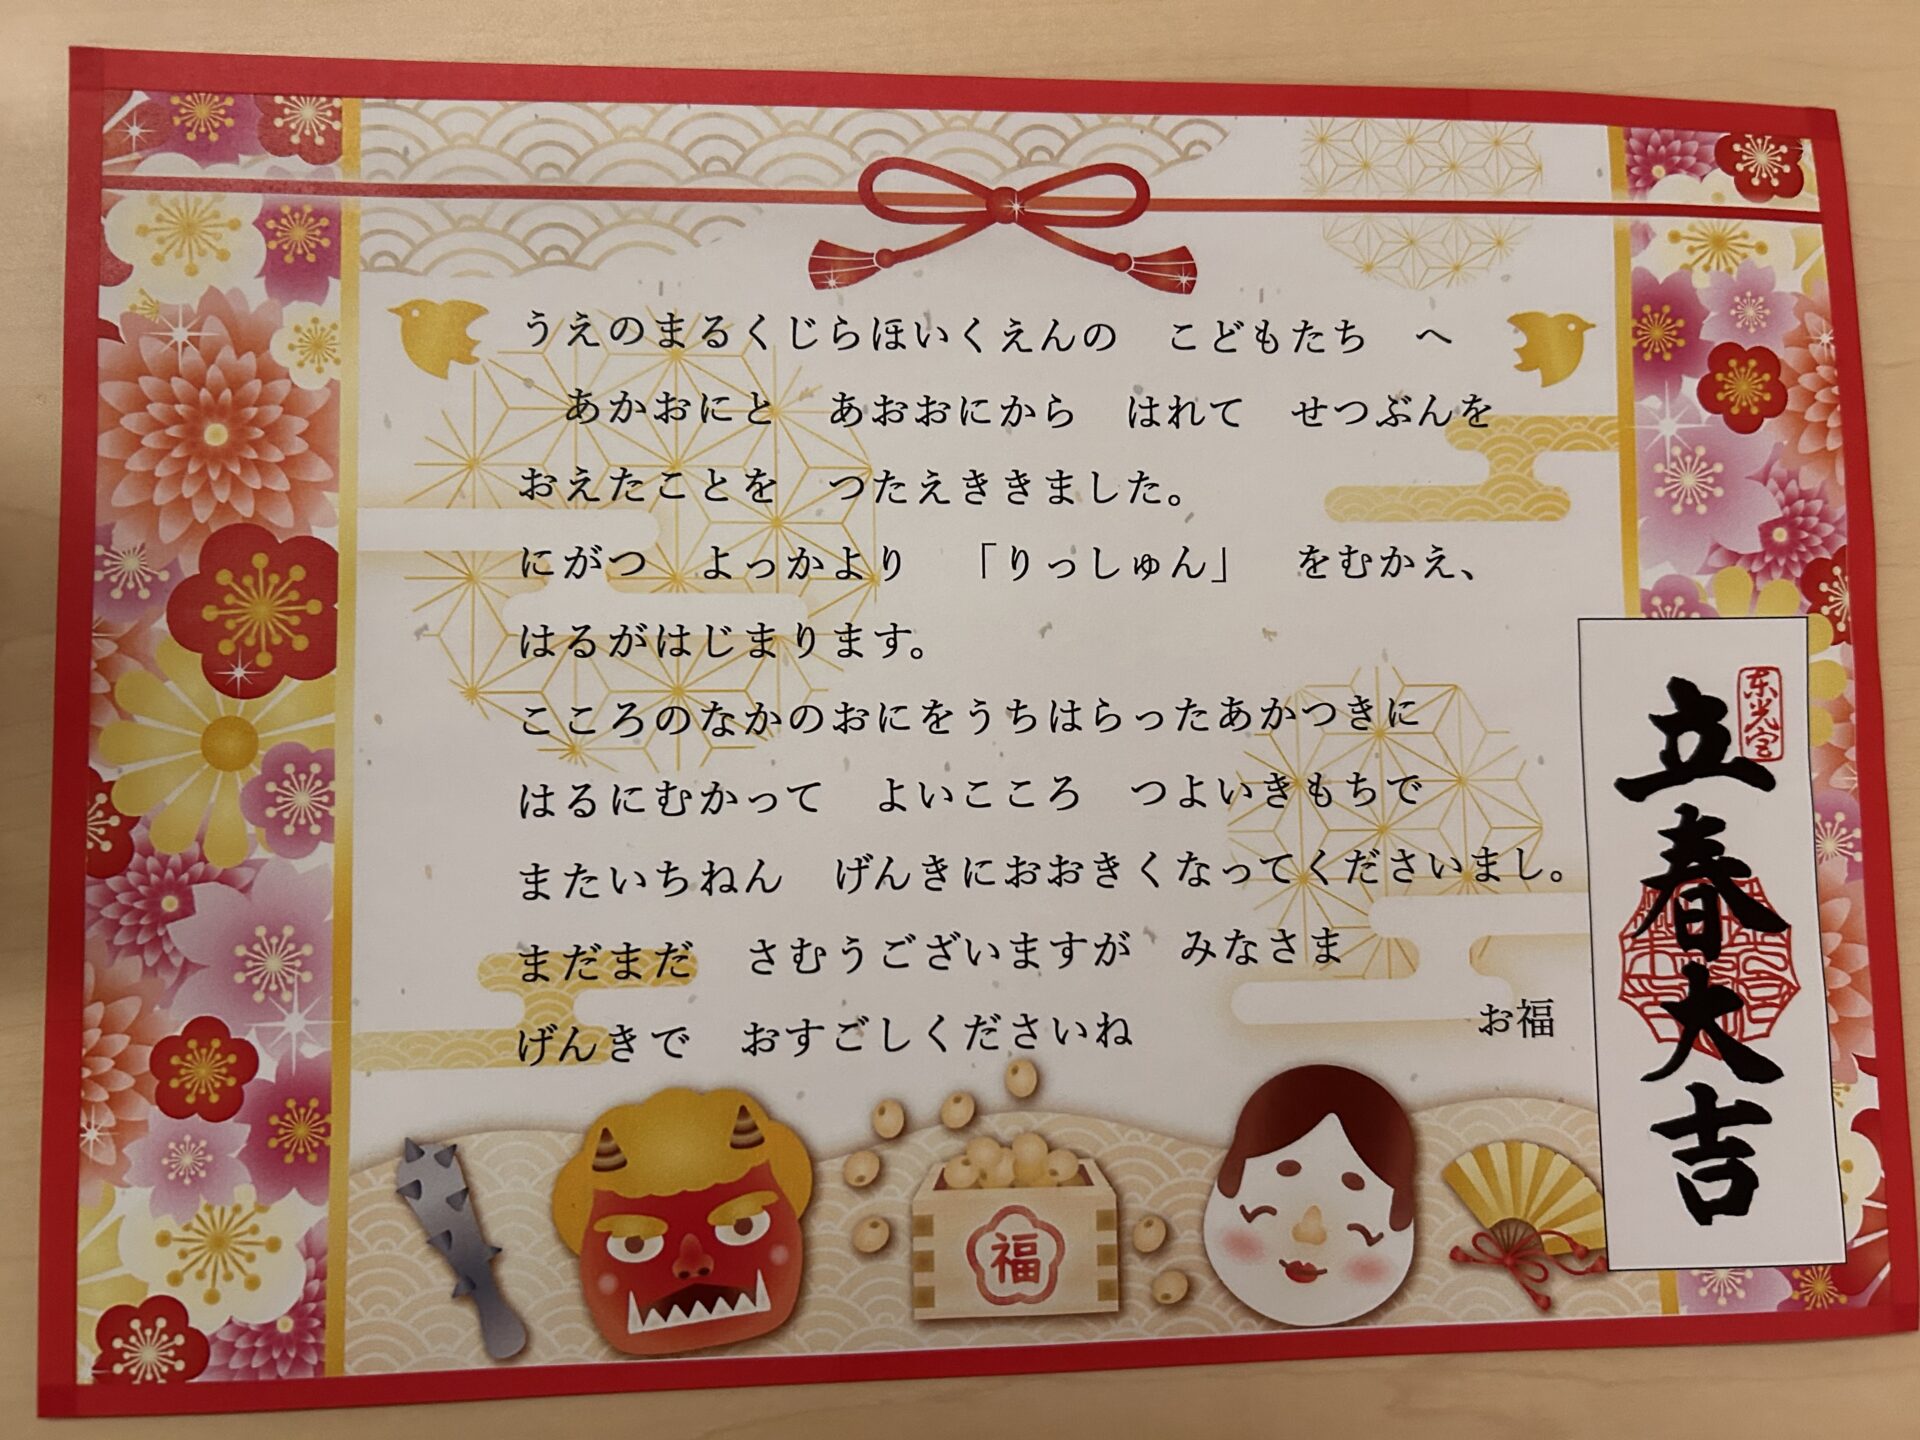 うえのまるくじらほいくえんの　こどもたち　へ
あかおにと　あおおにから　はれて　せつぶんを
おえたことを　つたえききました。
にがつ　よっかより　「りっしゅん」　をむかえ、
はるがはじまります。
こころのなかのおにをうちはらったあかつきに
はるにむかって　よいこころ　つよいきもちで
またいちねん　げんきにおおきくなってくださいまし。
まだまだ　さむうございますが　みなさま
げんきで　おすごしくださいね
お福
福
立春大吉